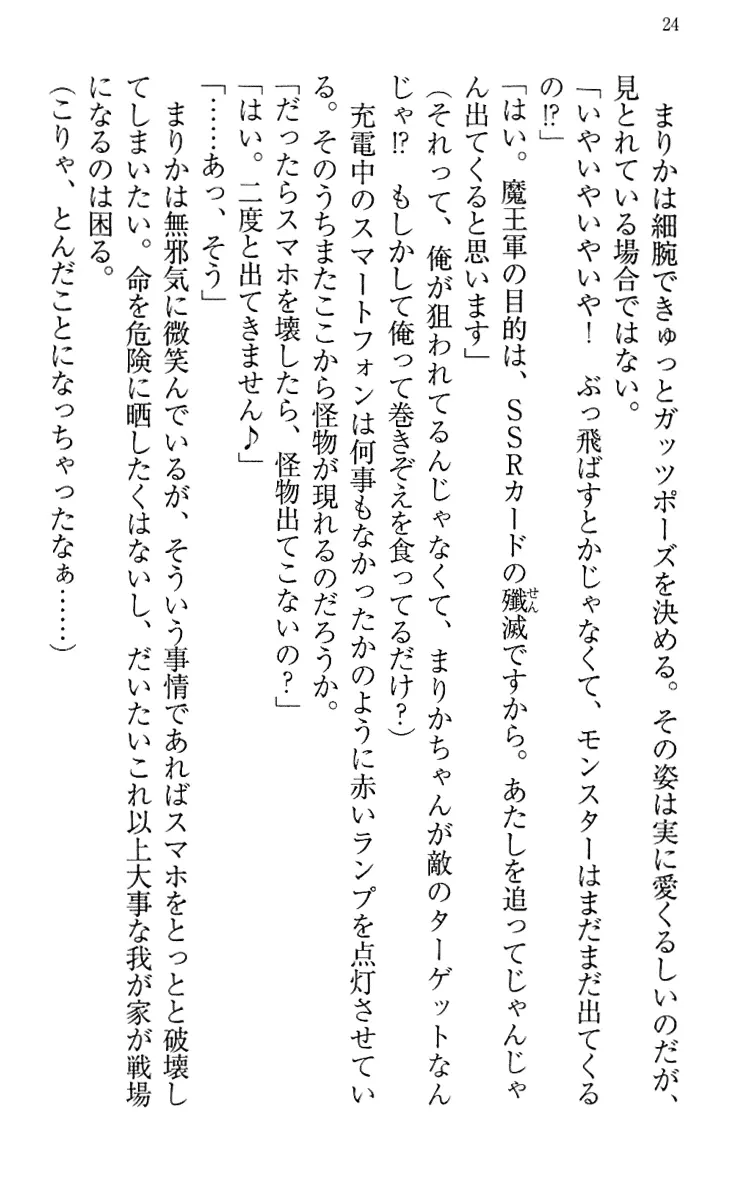 24
　まりかは細腕できゅっとガッツポーズを決める。その姿は実に愛くるしいのだが、
見とれている場合ではない。
「いやいやいやいや！　ぶっ飛ばすとかじゃなくて、モンスターはまだまだ出てくる
の!?」
「はい。魔王軍の目的は、ＳＳＲカードの殲滅ですから。あたしを追ってじゃんじゃ
ん出てくると思います」
（それって、俺が狙われてるんじゃなくて、まりかちゃんが敵のターゲットなん
じゃ!?　もしかして俺って巻きぞえを食ってるだけ？）
　充電中のスマートフォンは何事もなかったかのように赤いランプを点灯させてい
る。そのうちまたここから怪物が現れるのだろうか。
「だったらスマホを壊したら、怪物出てこないの？」
「はい。二度と出てきません♪」
「……あっ、そう」
　まりかは無邪気に微笑んでいるが、そういう事情であればスマホをとっとと破壊し
てしまいたい。命を危険に晒したくはないし、だいたいこれ以上大事な我が家が戦場
になるのは困る。
（こりゃ、とんだことになっちゃったなぁ……）
せん